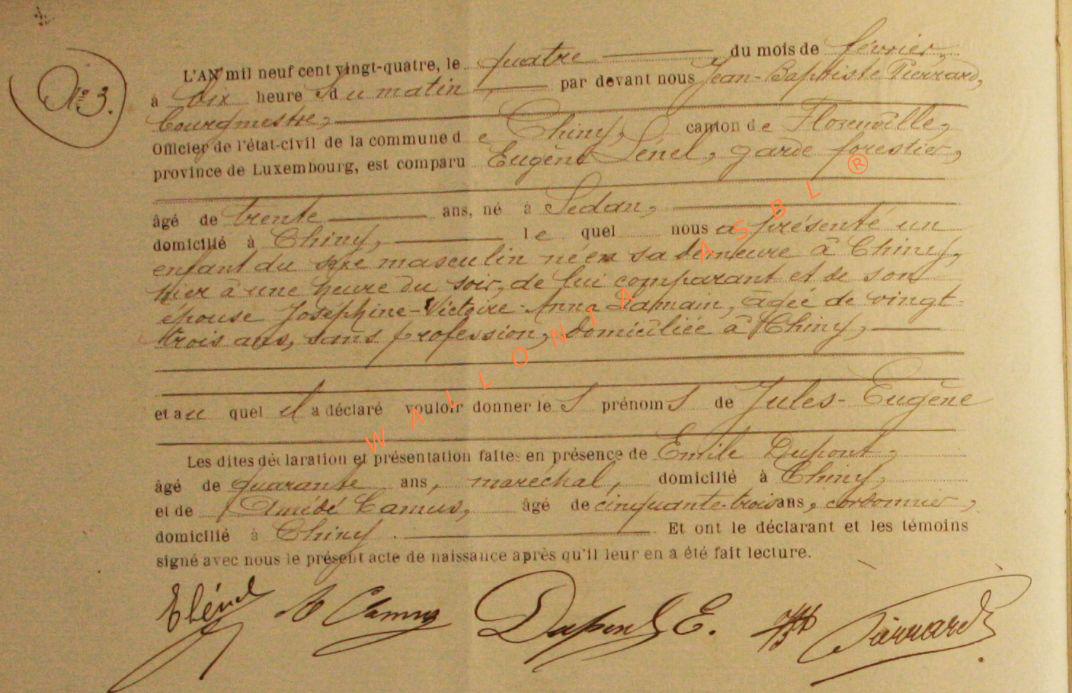 N° 3.
L'AN mil neuf cent vingt-quatre, le quatre du mois de février,
à dix heures du matin par devant nous Jean-Baptiste Pierrard,
bourgmestre,
Officier de l'état-civil de la commune de Chiny, canton de Florenville,
province de Luxembourg, est comparu Eugène Lenel, garde forestier,
âgé de trente ans, né à Sedan,
domicilié à Chiny, lequel nous a présenté un
enfant du sexe masculin né en sa demeure à Chiny,
hier à une heure du soir, de lui comparant et de son
épouse Joséphine-Victoire-Anna, âgée de vingt-
trois ans, sans profession, domiciliée à Chiny,
et auquel il a déclaré vouloir donner les prénoms de Jules-Eugène
Les dites déclaration et présentation faites en présence de Emile Dupont,
âgé de quarante ans, maréchal, domicilié à Chiny,
et de Amédé Camus, âgé de cinquante-trois ans, cordonnier,
domicilié à Chiny. Et ont le déclarant et les témoins
signé avec nous le présent acte de naissance après qu'il leur en a été fait lecture.
A Camus Dupont E. JB Pierrard
WALLONIA ASBL ®